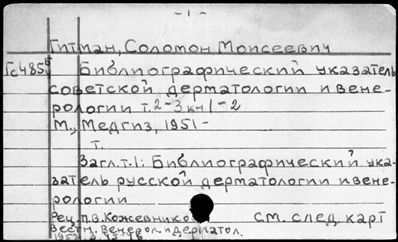 - 1 -
Гитман, Соломон Моисеевич
Библиографический указатель
советской дерматологии и вене-
рологии т.2-3 кн 1-2
М., Медгиз, 1951-
т.
Загл.т.1: Библиографический ука-
затель русской дерматологии и вене-
рологии
Рец. П.В. Кожевников см. след. карт
Вестн. венерол. и дерматол.